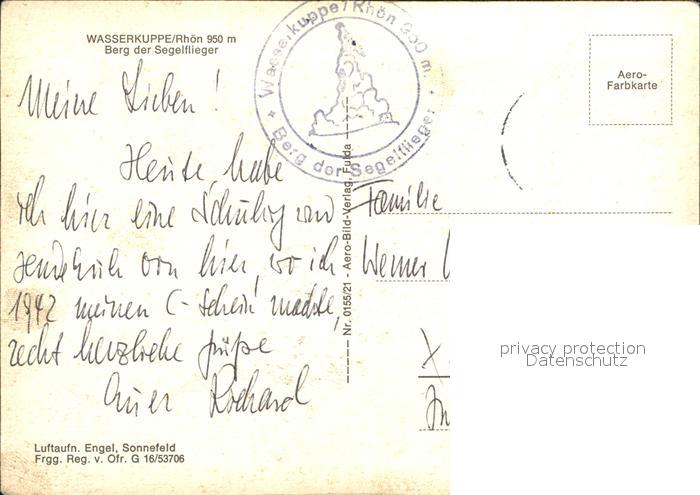 WASSERKUPPE/Rhön 950 m
Berg der Segelflieger
Wasserkuppe/Rhön 950 m.
Berg der Segelflieger
Aero-
Farbkarte
Meine Lieben!
Heute habe
ich hier eine Schulung und
sende Euch von hier, wo ich
1942 meinen C-Schein machte,
recht herzliche Grüße
Euer Richard
Nr. 0155/21 - Aero-Bild-Verlag, Fulda
Familie
Werner
privacy protection
Datenschutz
Luftaufn. Engel, Sonnefeld
Frgg. Reg. v. Ofr. G 16/53706